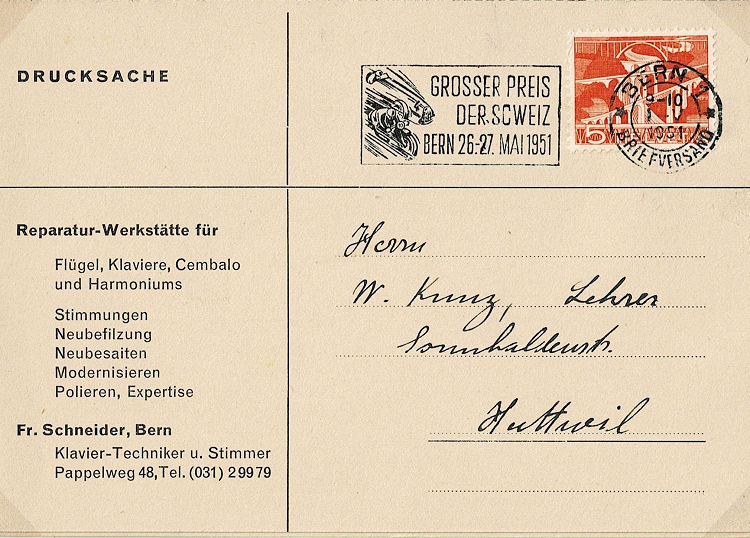 DRUCKSACHE
GROSSER PREIS
DER SCWEIZ
BERN 26.-27. MAI 1951
BERN 1
1951
BRIEFVERSAND
5
Reparatur-Werkstätte für
Flügel, Klaviere, Cembalo
und Harmoniums
Stimmungen
Neubefilzung
Neubesaiten
Modernisieren
Polieren, Expertise
Fr. Schneider, Bern
Klavier-Techniker u. Stimmer
Pappelweg 48, Tel. (031) 2 99 79
Herrn
W. Kunz, Lehrer
Sonnhaldenstr.
Huttwil